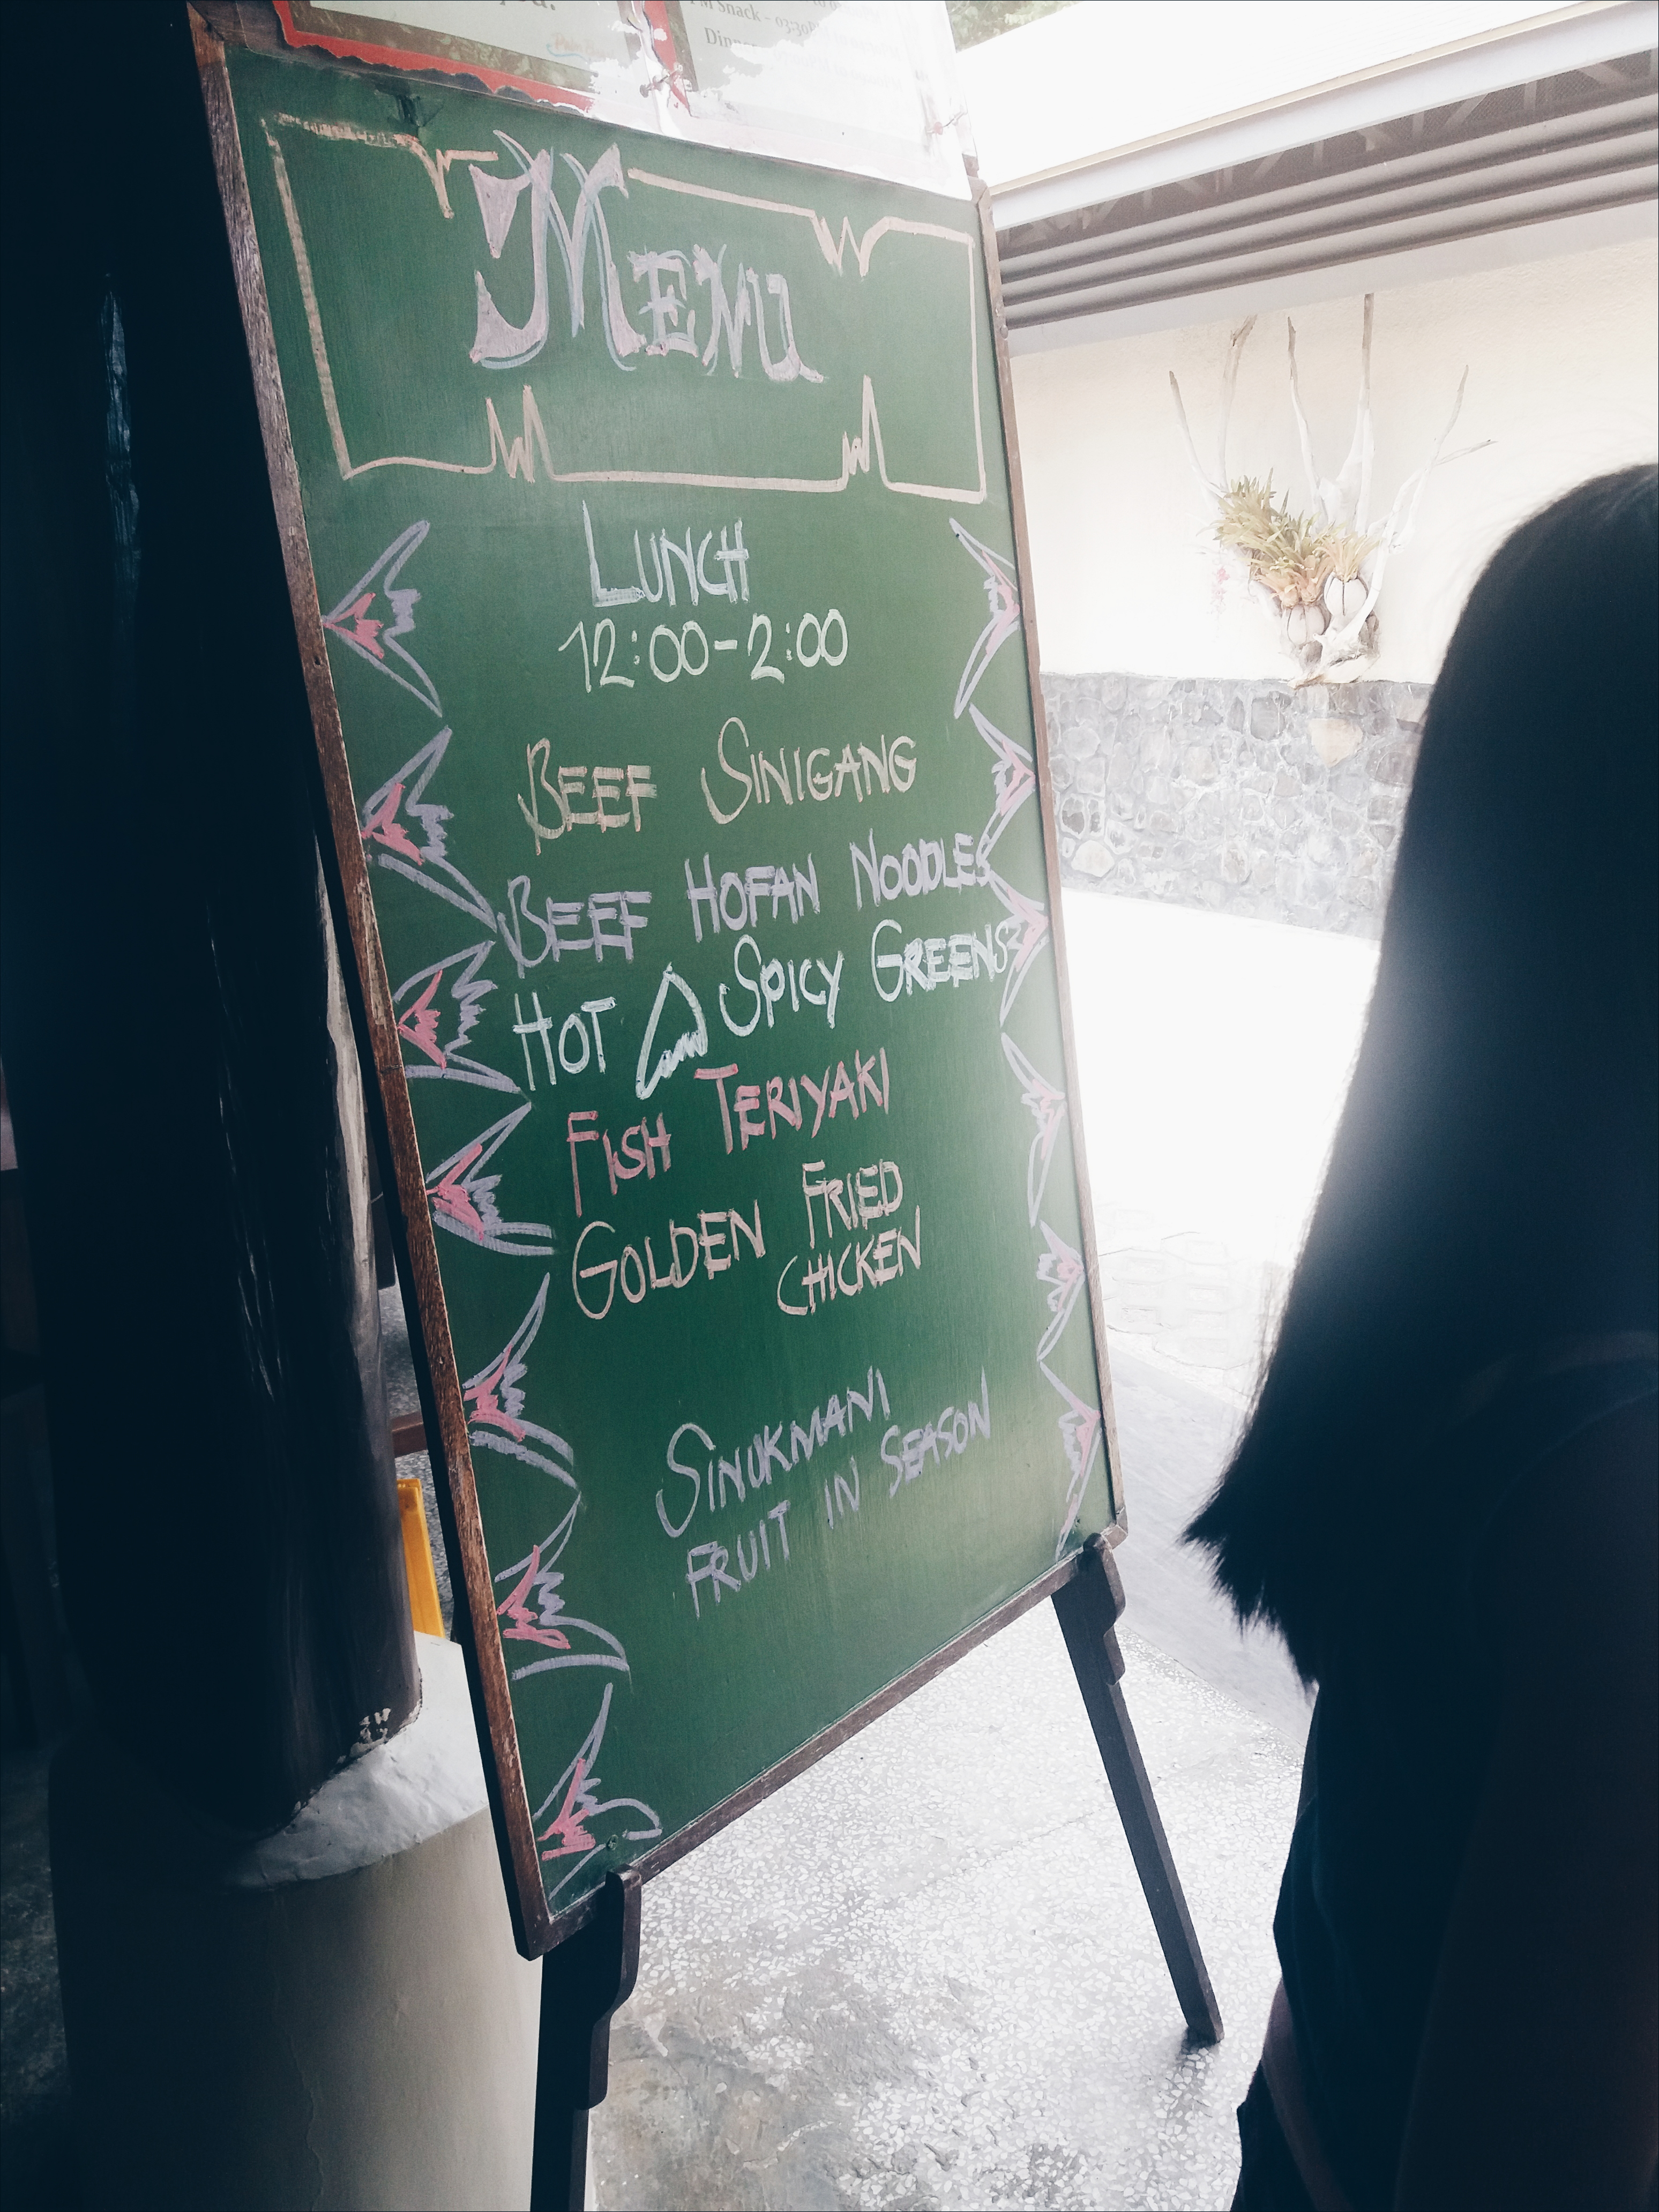 PM Snack - 03:30
MENU
LUNCH
12:00-2:00
BEEF SINIGANG
BEEF HOFAN NOODLES
HOT & SPICY GREENS
FISH TERIYAKI
GOLDEN FRIED
CHICKEN
SINUKMANI
FRUIT IN SEASON